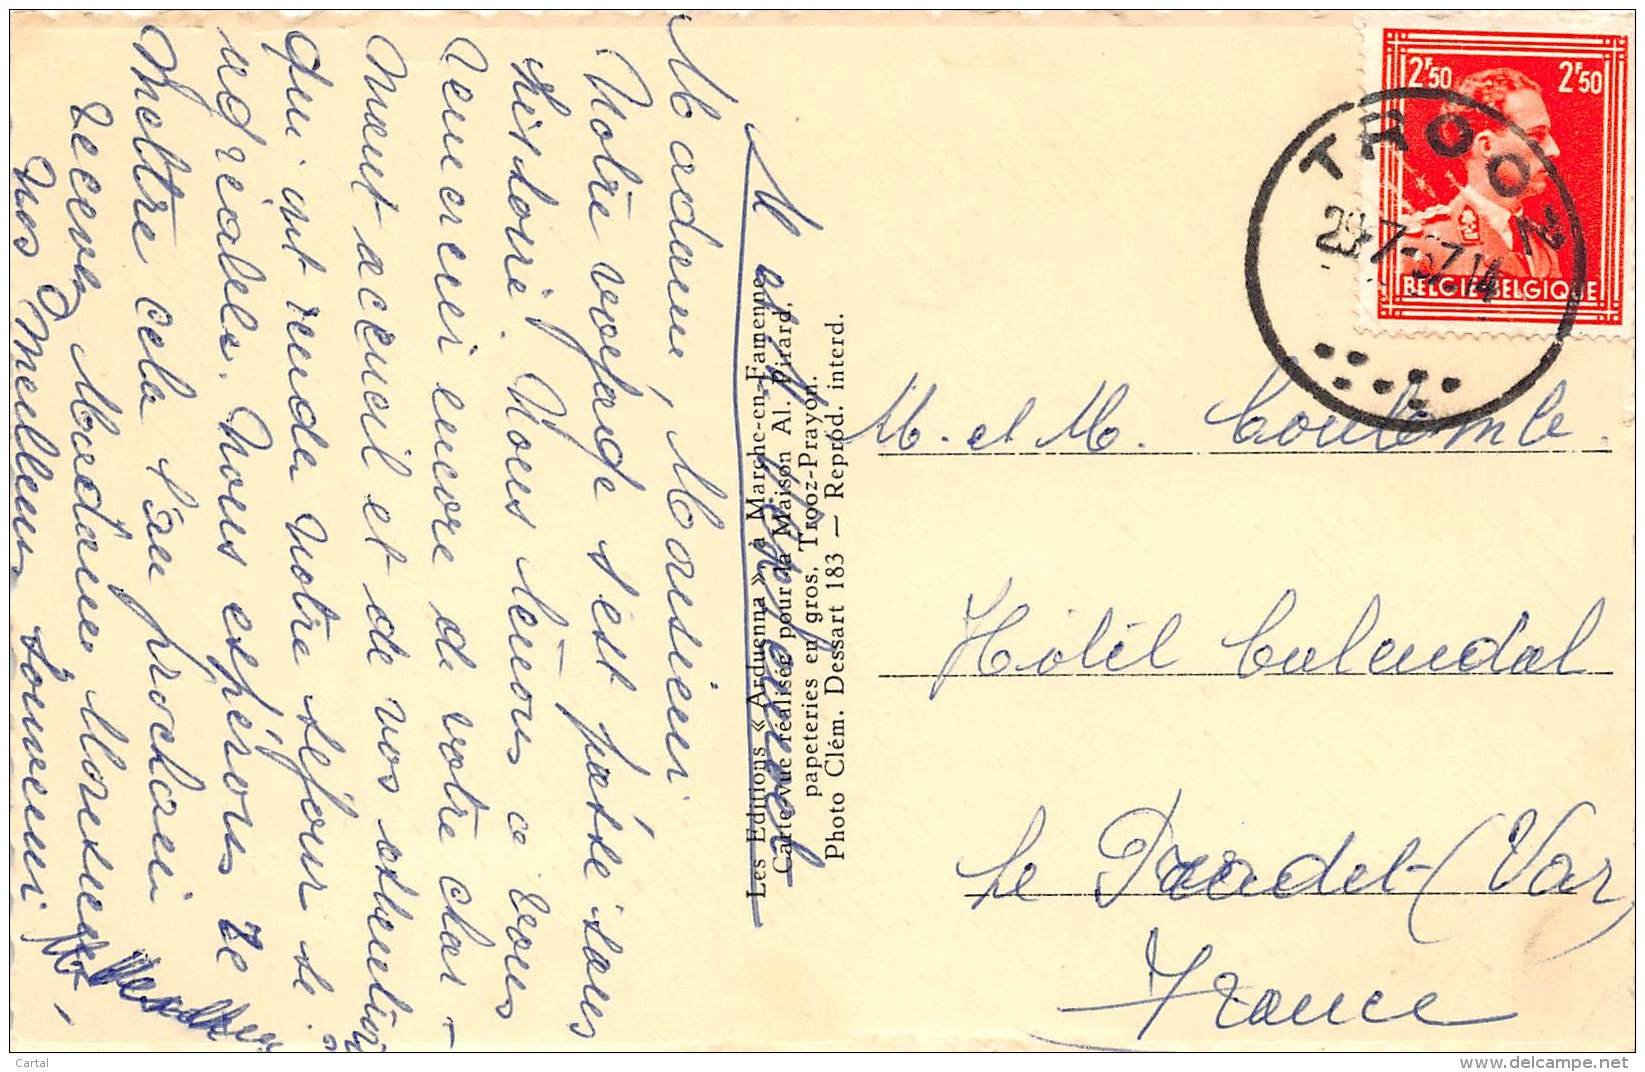 Madame, Monsieur
Notre voyage s'est passé sans
histoire. Nous tenons a vous
remercier encore de votre char-
mant accueil et de vos attentions
qui ont rendu notre séjour si
agréable. Nous espérons se
mettre cela l'an prochain
recevez Madame, Monsieur
nos meilleurs souvenirs
M et M
Les Editions « Arduenna » à Marche-en-Famenne
Carte vue réalisée pour la Maison Al. Pirard,
papeteries en gros, Trooz-Prayon.
Photo Clém. Dessart 183 — Reprod. interd.
2F50 2F50
BELGIE-BELGIQUE
TROOZ
29.7-57.14
M. et M. Coulomb.
Hôtel Calendal
Le Pradet (Var)
France
Cartal
www.delcampe.net